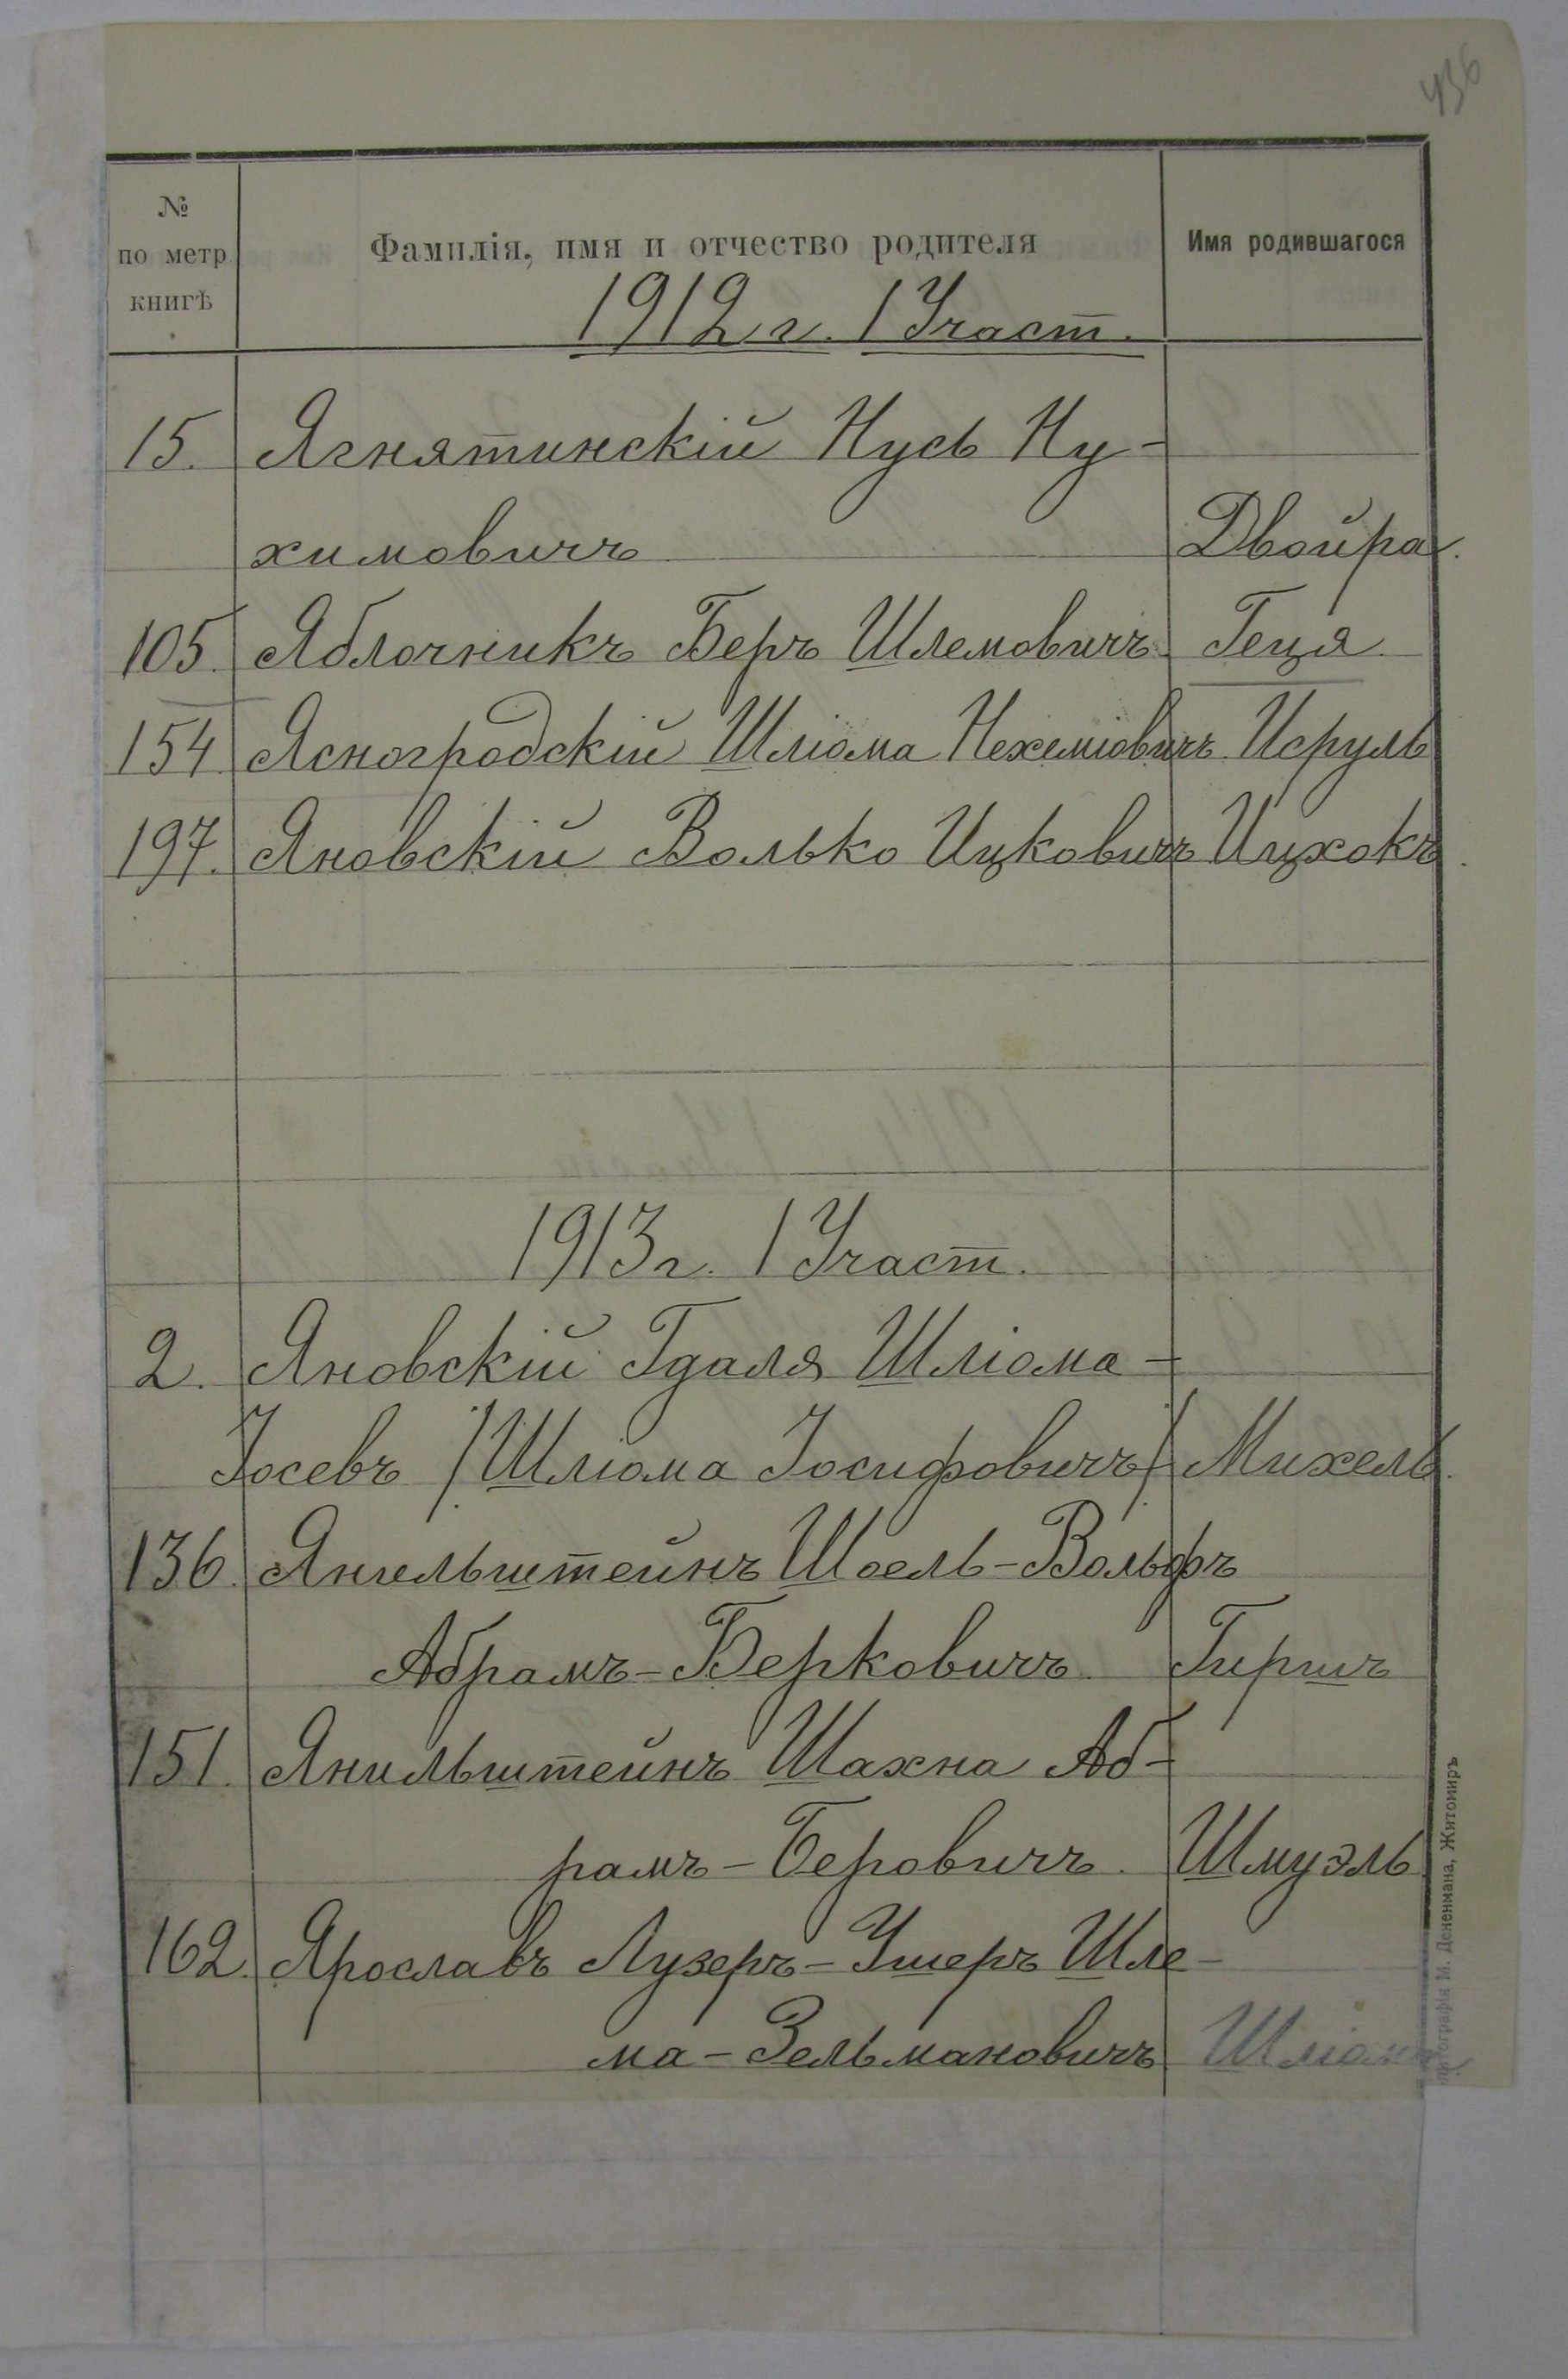 436
№ по метр книгѣ Фамилія, имя и отчество родителя Имя родившагося
1912 г. 1 Участ.
15. Ягнятинскій Нусь Ну-
химовичъ Двойра.
105. Яблочникъ Беръ Шлемовичъ Геця.
154 Ясногродскій Шліома Нехеміовичъ Исруль
197. Яновскій Волько Ицковичъ Ицхокъ.
1913 г. 1 Участ.
2. Яновскій Гдаля Шліома-
Іосевъ /Шліома Іосифовичъ/ Михель.
136. Янкельштейнъ Шоель-Вольфъ
Абрамъ-Берковичъ Гиршъ
151. Янкильштейнъ Шахна Аб-
рамъ-Беровичъ. Шмуэль
162. Ярославъ Лузеръ-Ушеръ Шле-
ма-Зельмановичъ Шліома
Литографія М. Дененмана, Житомиръ